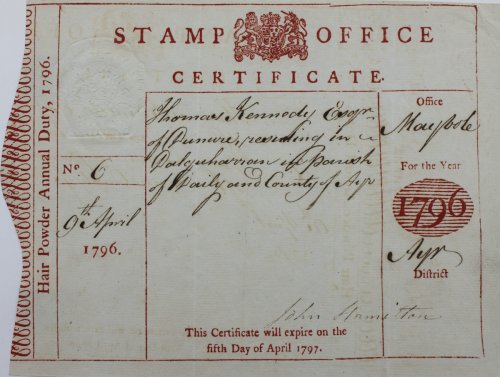 Hair Powder Annual Duty, 1796.
STAMP OFFICE
CERTIFICATE.
No. 6
9th April
1796.
Thomas Kennedy Esqr.
of Dunure, residing in
Dalquharran in Parish
of Daily and County of Ayr
Office
Maybole
For the Year
1796
Ayr
District
John Hamilton
This Certificate will expire on the
fifth Day of April 1797.